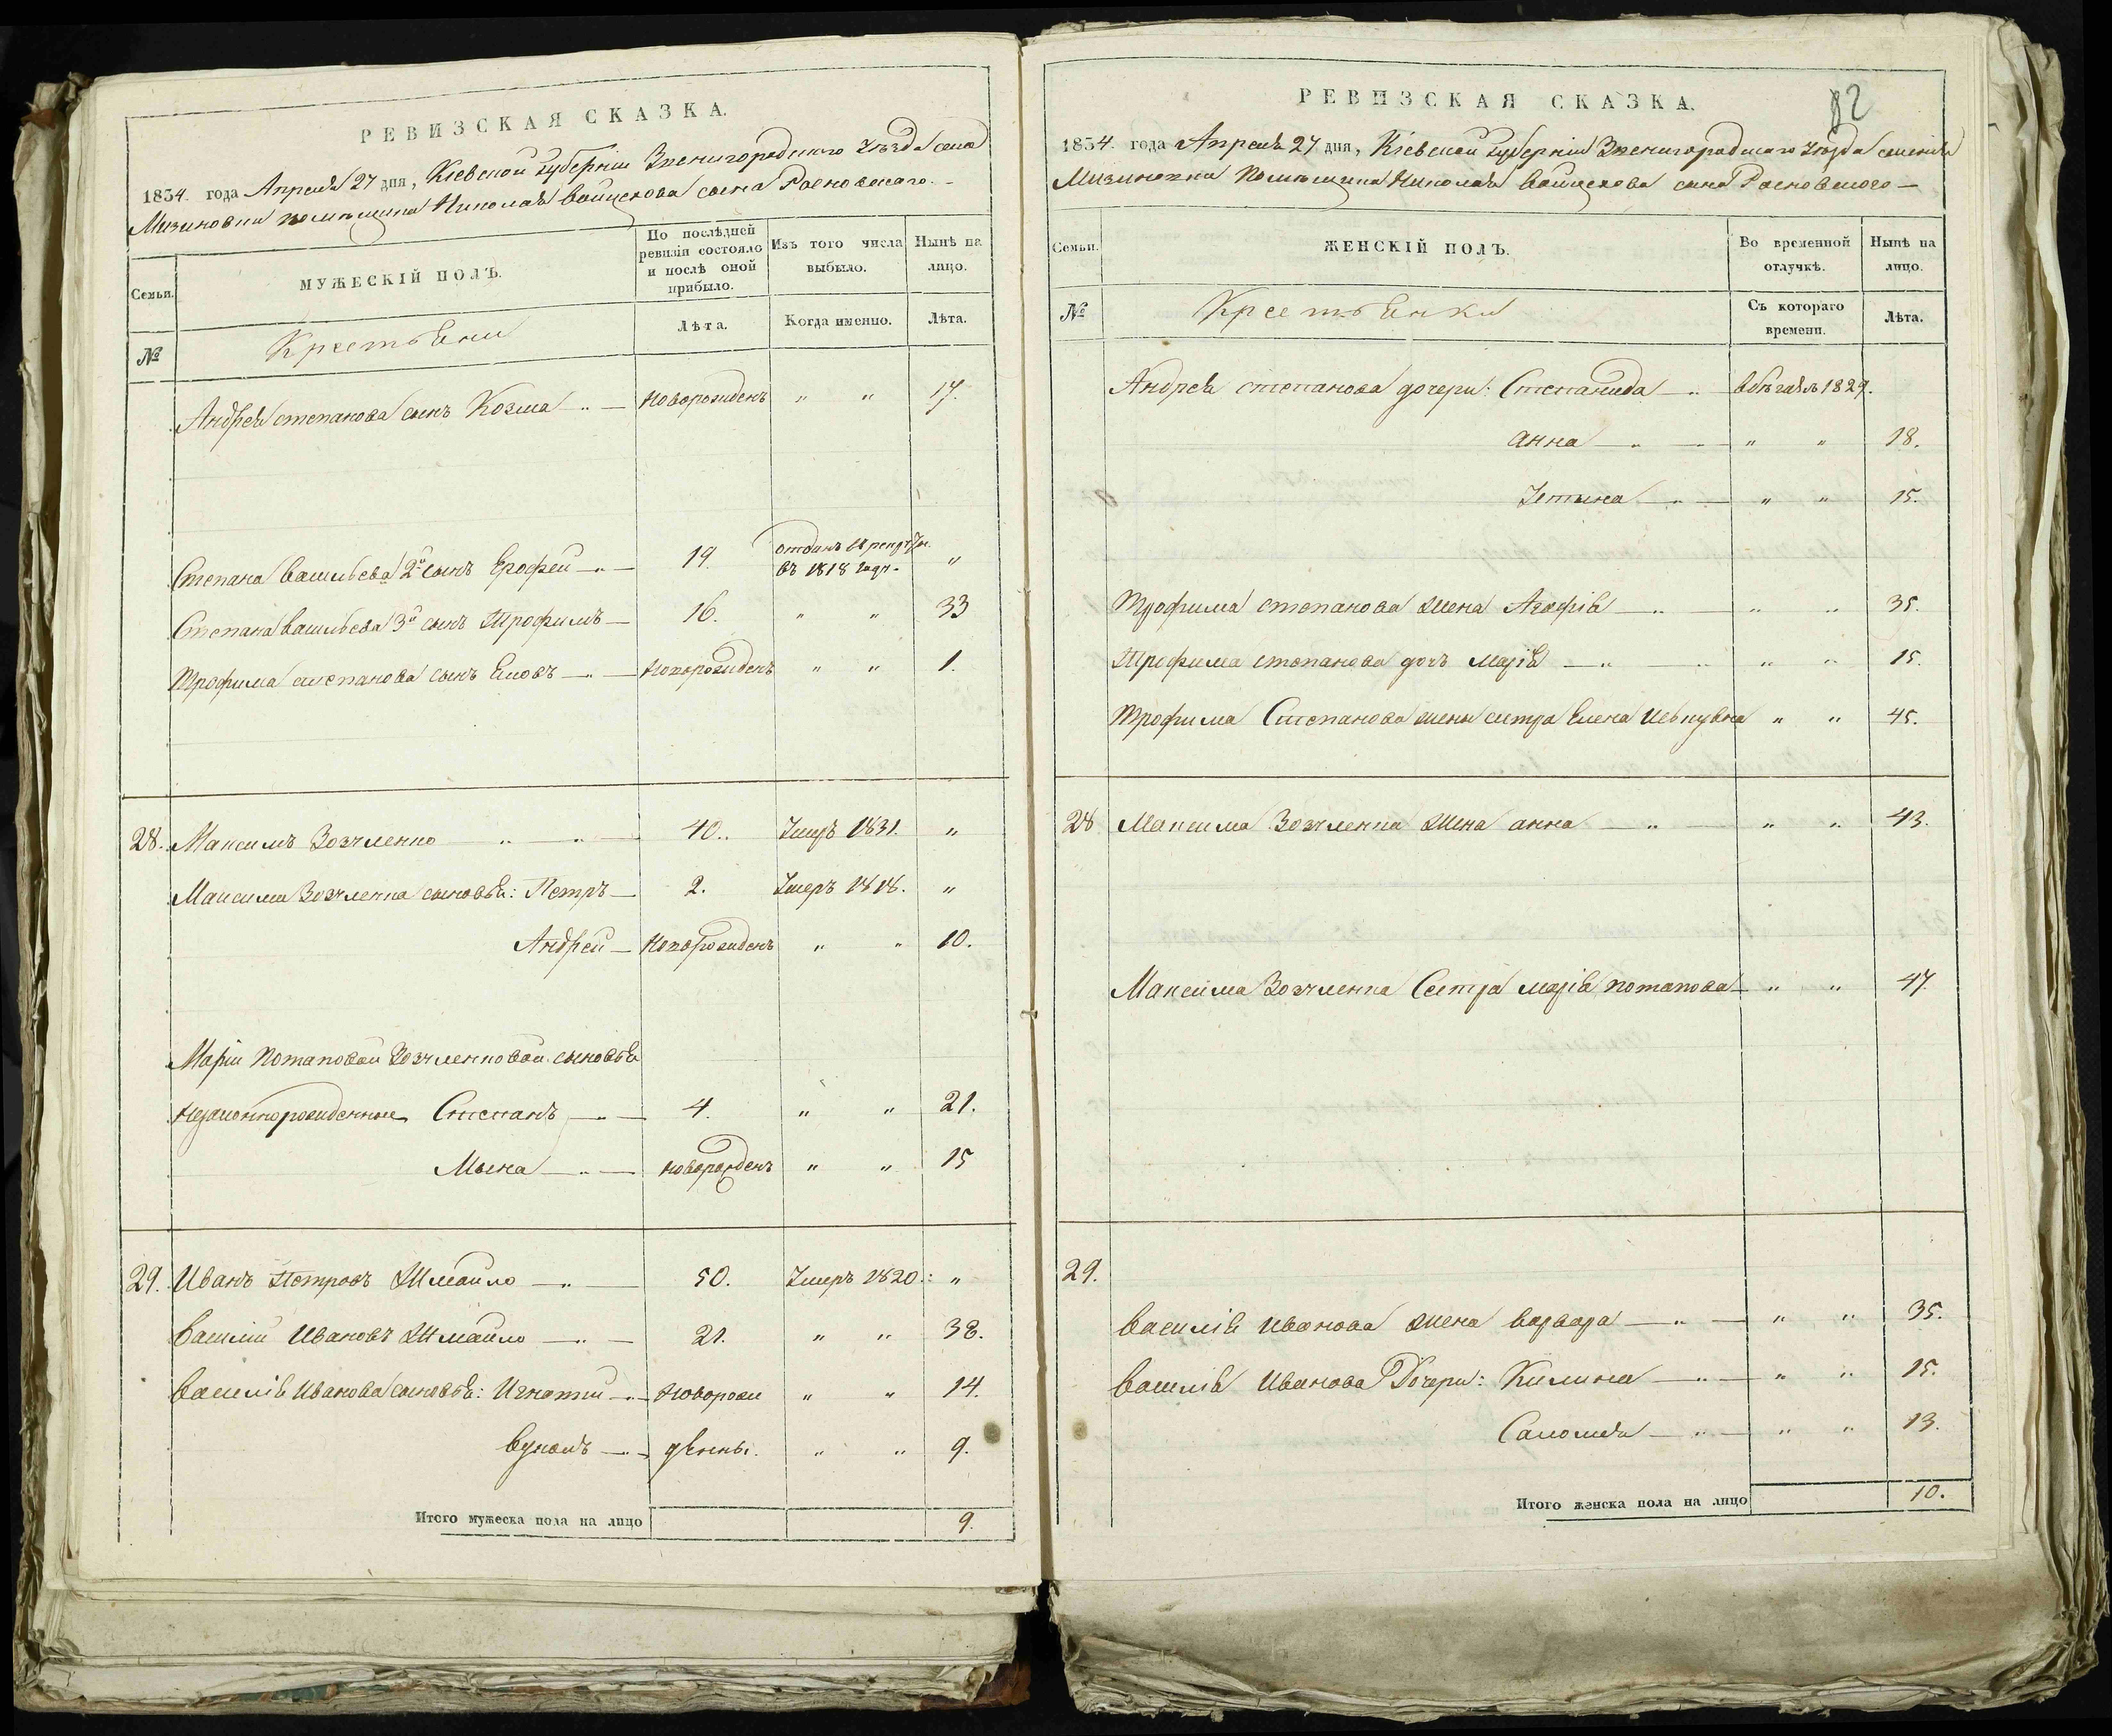 РЕВИЗСКАЯ СКАЗКА.
1834. года Апреля 27 дня, Кіевской губерніи Звенигородского Уѣзда села
Мизиновки помѣщика Николая Войцехова сына Росновского.
Семьи.
МУЖЕСКІЙ ПОЛЪ.
По послѣдней ревизіи состояло и послѣ оной прибыло.
Изъ того числа выбыло.
Нынѣ на лицо.
№
Крестьяни
Лѣта.
Когда именно.
Лѣта.
Андрея степанова сынъ Козма новорожденъ " " 17.
Степана васильева 2й сынъ Ерофей 19. отданъ
въ 1818 году. "
Степана васильева 3й сынъ Трофимъ 16. " " 33
Трофима степанова сынъ новорожденъ " " 1.
28. Максимъ Возчленко 40. Умеръ 1831. "
Максима Возчленка сыновья: Петръ 2. Умеръ 1818. "
Андрей новорожденъ " " 10.
Маріи Потаповой Возчленковой сыновья
незаконнорожденные Степанъ 4. " " 21.
Мына новорожденъ " " 15
29. Иванъ Петровъ Шмайло 50. Умеръ 1820. "
Василій Ивановъ Шмайло 21. " " 38.
Василія Иванова сыновья: Игнатій новорож " " 14.
Вуколъ дѣнны. " " 9.
Итого мужеска пола на лицо 9.
82
РЕВИЗСКАЯ СКАЗКА.
1834. года Апреля 27 дня, Кіевской губерніи Звенигородского Уѣзда селенія
Мизиновки Помѣщика Николая Войцехова сына Росновского
Семьи.
ЖЕНСКІЙ ПОЛЪ.
Во временной отлучкѣ.
Нынѣ на лицо.
№
Крестьянки
Съ котораго времени.
Лѣта.
Андрея степанова дочери: Степанида вбѣгахъ 1829.
анна " " 18.
Устина " " 15.
Трофима степанова жена Агафія " " 35.
Трофима степанова дочь марія " " 15.
Трофима Степанова жены сестра Елена " " 45.
28 Максима Возчленка жена анна " " 43.
Максима Возчленка Сестра марія потапова " " 47.
29.
Василія Иванова жена варвара " " 35.
Василія Иванова Дочери: Килина " " 15.
Саломія " " 13.
Итого женска пола на лицо 10.